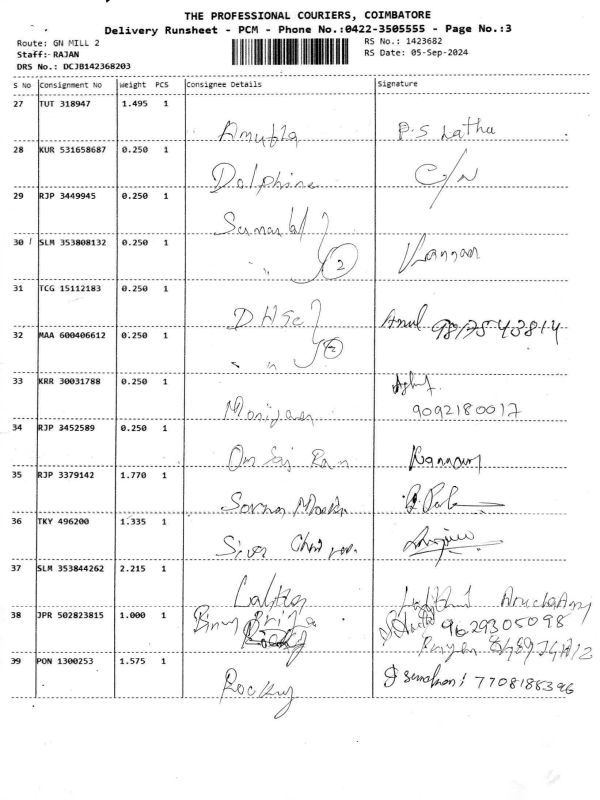 THE PROFESSIONAL COURIERS, COIMBATORE
Delivery Runsheet - PCM - Phone No.:0422-3505555 - Page No.:3
Route: GN MILL 2 RS No.: 1423682
Staff:- RAJAN RS Date: 05-Sep-2024
DRS No.: DCJB142368203
S No Consignment No Weight PCS Consignee Details Signature
27 TUT 318947 1.495 1
P.S Latha
28 KUR 531658687 0.250 1
Dolphine C/N
29 RJP 3449945 0.250 1
30 SLM 353808132 0.250 1
" 2 Kannan
31 TCG 15112183 0.250 1
DHSC
32 MAA 600406612 0.250 1
" " 2
33 KRR 30031788 0.250 1
9092180017
34 RJP 3452589 0.250 1
Om Sai Ram Kannan
35 RJP 3379142 1.770 1
36 TKY 496200 1.335 1
Siva
37 SLM 353844262 2.215 1
Lalitha
38 JPR 502823815 1.000 1
9629305098
39 PON 1300253 1.575 1
Rocky 7708188396